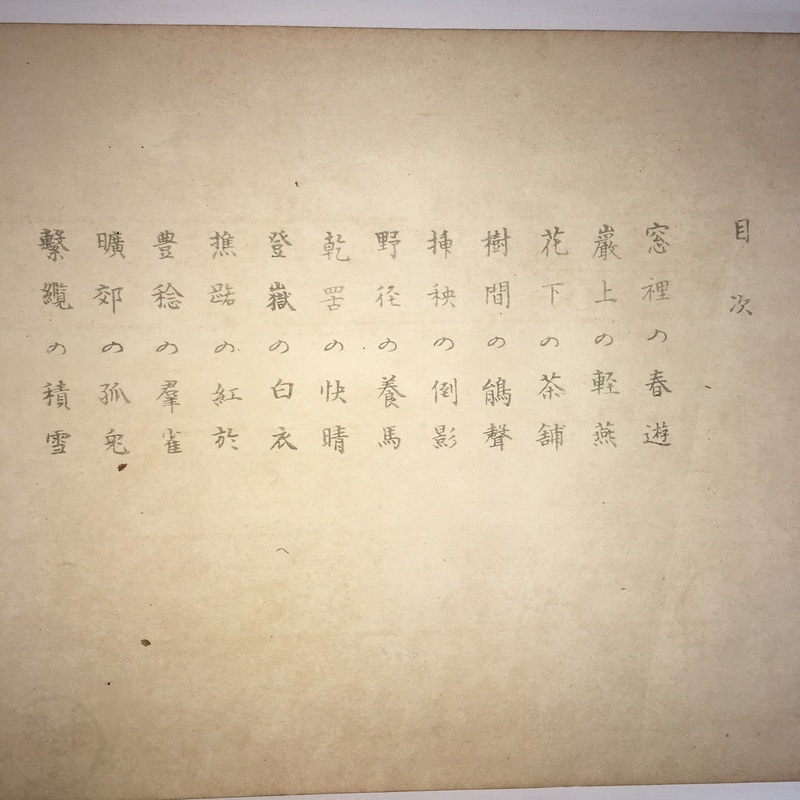 目次
窓裡の春遊
巖上の軽燕
花下の茶舗
樹間の鵃聲
挿秧の倒影
野径の養馬
乾罟の快晴
登嶽の白衣
樵路の紅於
豊稔の羣雀
曠郊の孤兎
繋纜の積雪